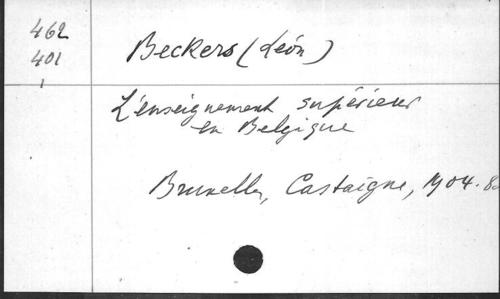 462
401
1
Beckers (Léon)
L'enseignement supérieur
en Belgique
Bruxelles, Castaigne, 1904. 8º